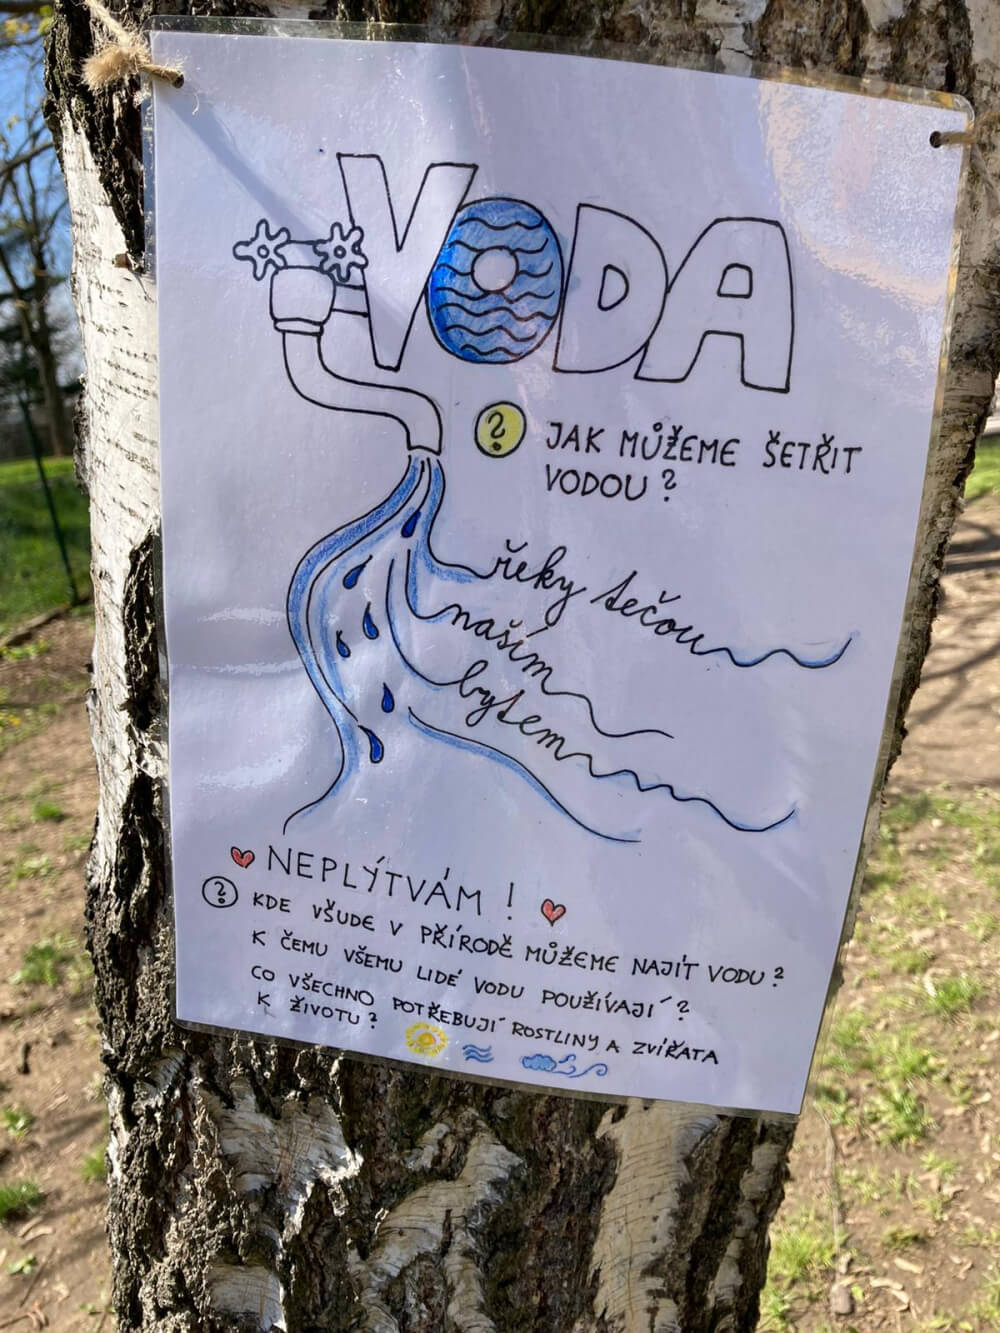 VODA
? JAK MŮŽEME ŠETŘIT
VODOU?
řeky tečou
naším
bytem
NEPLÝTVÁM!
? KDE VŠUDE V PŘÍRODĚ MŮŽEME NAJÍT VODU?
K ČEMU VŠEMU LIDÉ VODU POUŽÍVAJÍ?
CO VŠECHNO POTŘEBUJÍ ROSTLINY A ZVÍŘATA
K ŽIVOTU?